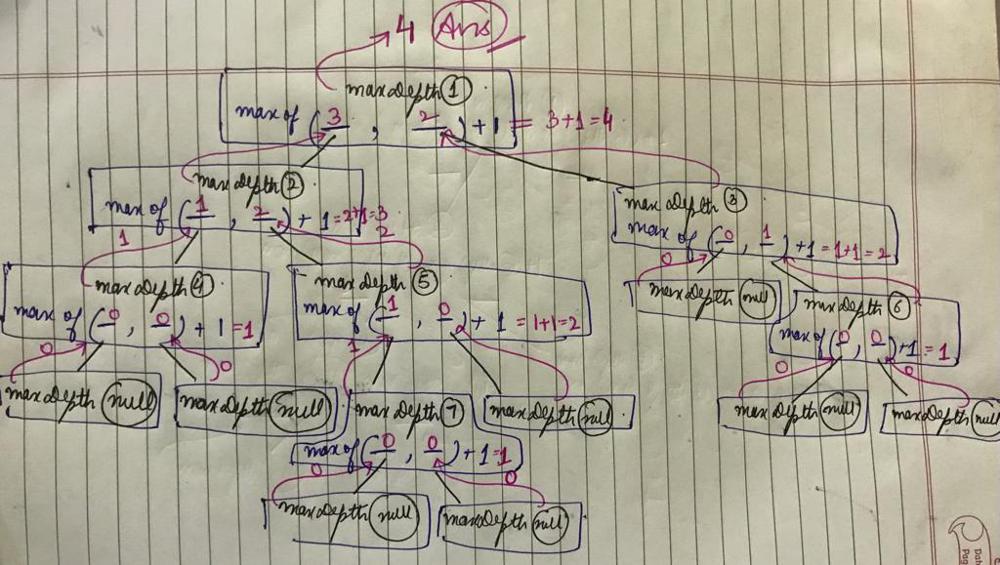 4 Ans
maxDepth 1
max of (3, 2) + 1 = 3+1=4
maxDepth 2
max of (1, 2) + 1 = 2+1=3
maxDepth 3
max of (0, 1) + 1 = 1+1=2
1
2
0
maxDepth 4
max of (0, 0) + 1 = 1
maxDepth 5
max of (1, 0) + 1 = 1+1=2
maxDepth null
maxDepth 6
max of (0, 0) + 1 = 1
0
0
1
0
0
maxDepth null
maxDepth null
maxDepth 7
max of (0, 0) + 1 = 1
maxDepth null
maxDepth null
maxDepth null
0
0
maxDepth null
maxDepth null